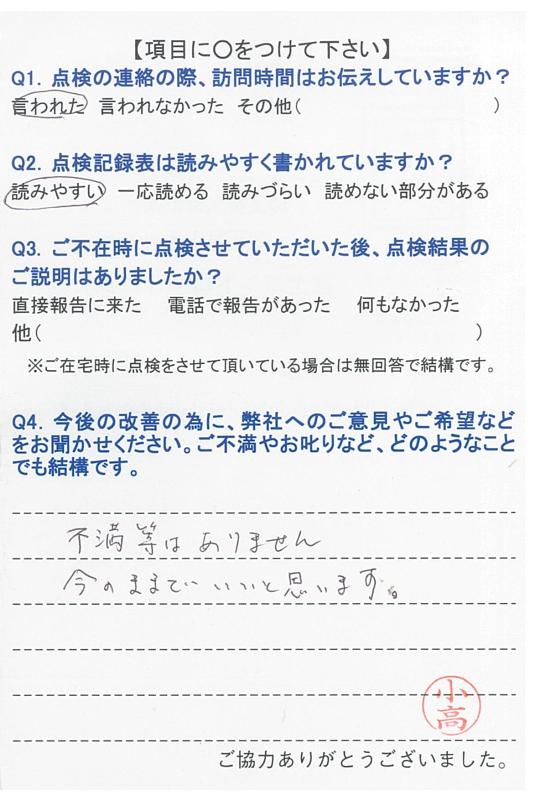 【項目に〇をつけて下さい】
Q1. 点検の連絡の際、訪問時間はお伝えしていますか？
言われた 言われなかった その他( )
Q2. 点検記録表は読みやすく書かれていますか？
読みやすい 一応読める 読みづらい 読めない部分がある
Q3. ご不在時に点検させていただいた後、点検結果の
ご説明はありましたか？
直接報告に来た 電話で報告があった 何もなかった
他( )
※ご在宅時に点検をさせて頂いている場合は無回答で結構です。
Q4. 今後の改善の為に、弊社へのご意見やご希望など
をお聞かせください。ご不満やお叱りなど、どのようなこと
でも結構です。
不満等はありません
今のままでいいと思います。
小高
ご協力ありがとうございました。